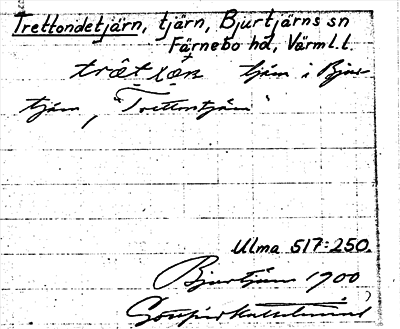 Trettondetjärn, tjärn, Bjurtjärns sn
Färnebo hd, Värml. l.
tjärn i Bjur-
tjärn, "Trettontjärn"
Ulma 517:250.
Bjurtjärn 1900